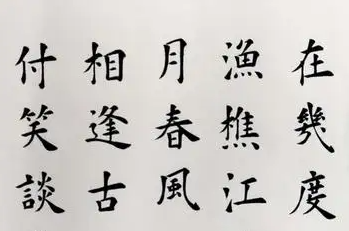 在幾度
漁樵江
月春風
相逢古
付笑談